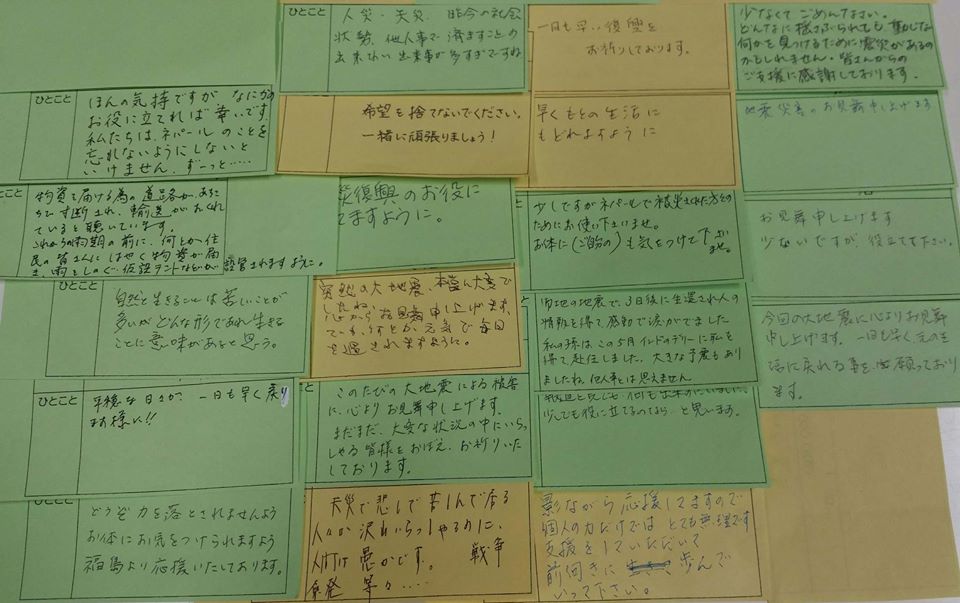 ひとこと
人災・天災、昨今の社会
状勢、他人事で済ますことの
出来ない出来事が多すぎですね
一日も早い復興を
お祈りしております。
少なくてごめんなさい。
どんなに揺さぶられても、動じない
何かを見つけるために震災があるの
かもしれません。皆さんからの
ご支援に感謝しております。
ひとこと
ほんの気持ですが なにかの
お役に立てれば幸いです。
私たちは、ネパールのことを
忘れないようにしないと
いけません。ずーっと……
希望を捨てないでください。
一緒に頑張りましょう!
早くもとの生活に
もどれますように
地震災害のお見舞申し上げます
ひとこと
物資を届ける為の道路が、あち
こちで寸断され、輸送がおくれ
ていると聴いています。
これからの雨期の前に、何とか住
民の皆さんにはやく物資が届
き、雨をしのぐ仮設テントなどが設営されますように。
災復興のお役に
てますように。
少しですがネパールで被災された方々の
ためにお使い下さいませ。
お体に(ご自分の)も気をつけて下さいませ。
お見舞申し上げます
少ないですが、役立てて下さい。
自然と生きることは苦しいことが
多いがどんな形であれ生きる
ことに意味があると思う。
突然の大地震、本当に大変で
したね。心からお見舞申し上げます。
元気で毎日
を過されますように。
の地震で、3日後に生還され人の
情報を得て感動で涙がでました
私の孫は、この5月インドのデリーに職を
得て赴任しました。大きな予震もあり
ましたね。他人事とは思えません
今回の大地震に心よりお見舞
申し上げます。一日も早く元の生
活に戻れる事を願っており
ます。
ひとこと
平穏な日々が、一日も早く戻り
ます様に!!
ひとこと
このたびの大地震による被害
に、心よりお見舞申し上げます。
まだまだ、大変な状況の中にいらっ
しゃる皆様をおぼえ、お祈りいた
しております。
少しでも役に立てるのなら、と思います。
ひとこと
どうぞ力を落とされませんよう
お体にお気をつけられますよう
福島より応援いたしております。
天災で悲しで苦しんで居る
人々が沢山いらっしゃるのに、
人間は愚かです。 戦争
原発 等々……
影ながら応援してますので
個人の力だけではとても無理です
支援をしていただいて
前向きに 歩んで
いって下さい。